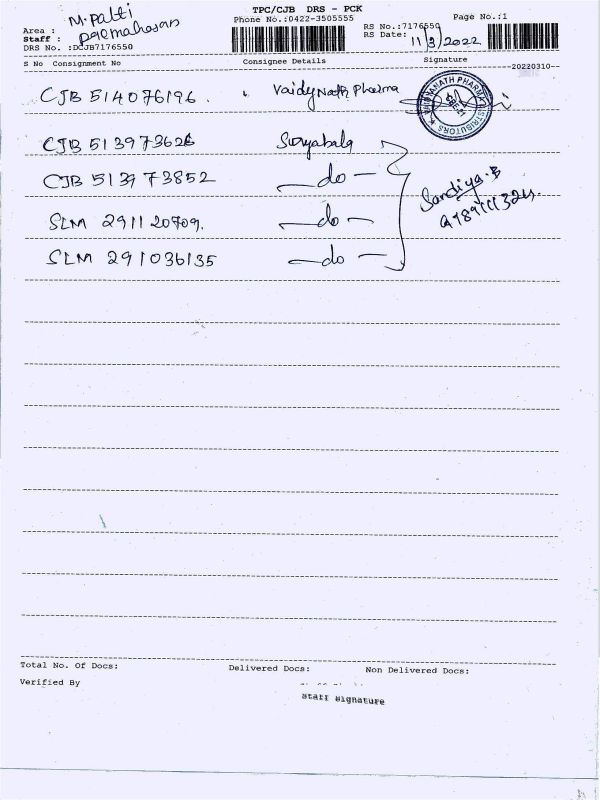 TPC/CJB DRS - PCK
Area : M. Patti Phone No.:0422-3505555 RS No.:7176550 Page No.:1
Staff : RS Date: 11/3/2022
DRS No. :DCJB7176550
S No Consignment No Consignee Details Signature
20220310
CJB 514076196. VaidyNath Pharma
CJB 513973626 Suryabala
CJB 513973852 —do—
SLM 291120709. —do— Sandiya.B
SLM 291036135 —do—
Total No. Of Docs: Delivered Docs: Non Delivered Docs:
Verified By
Staff Signature